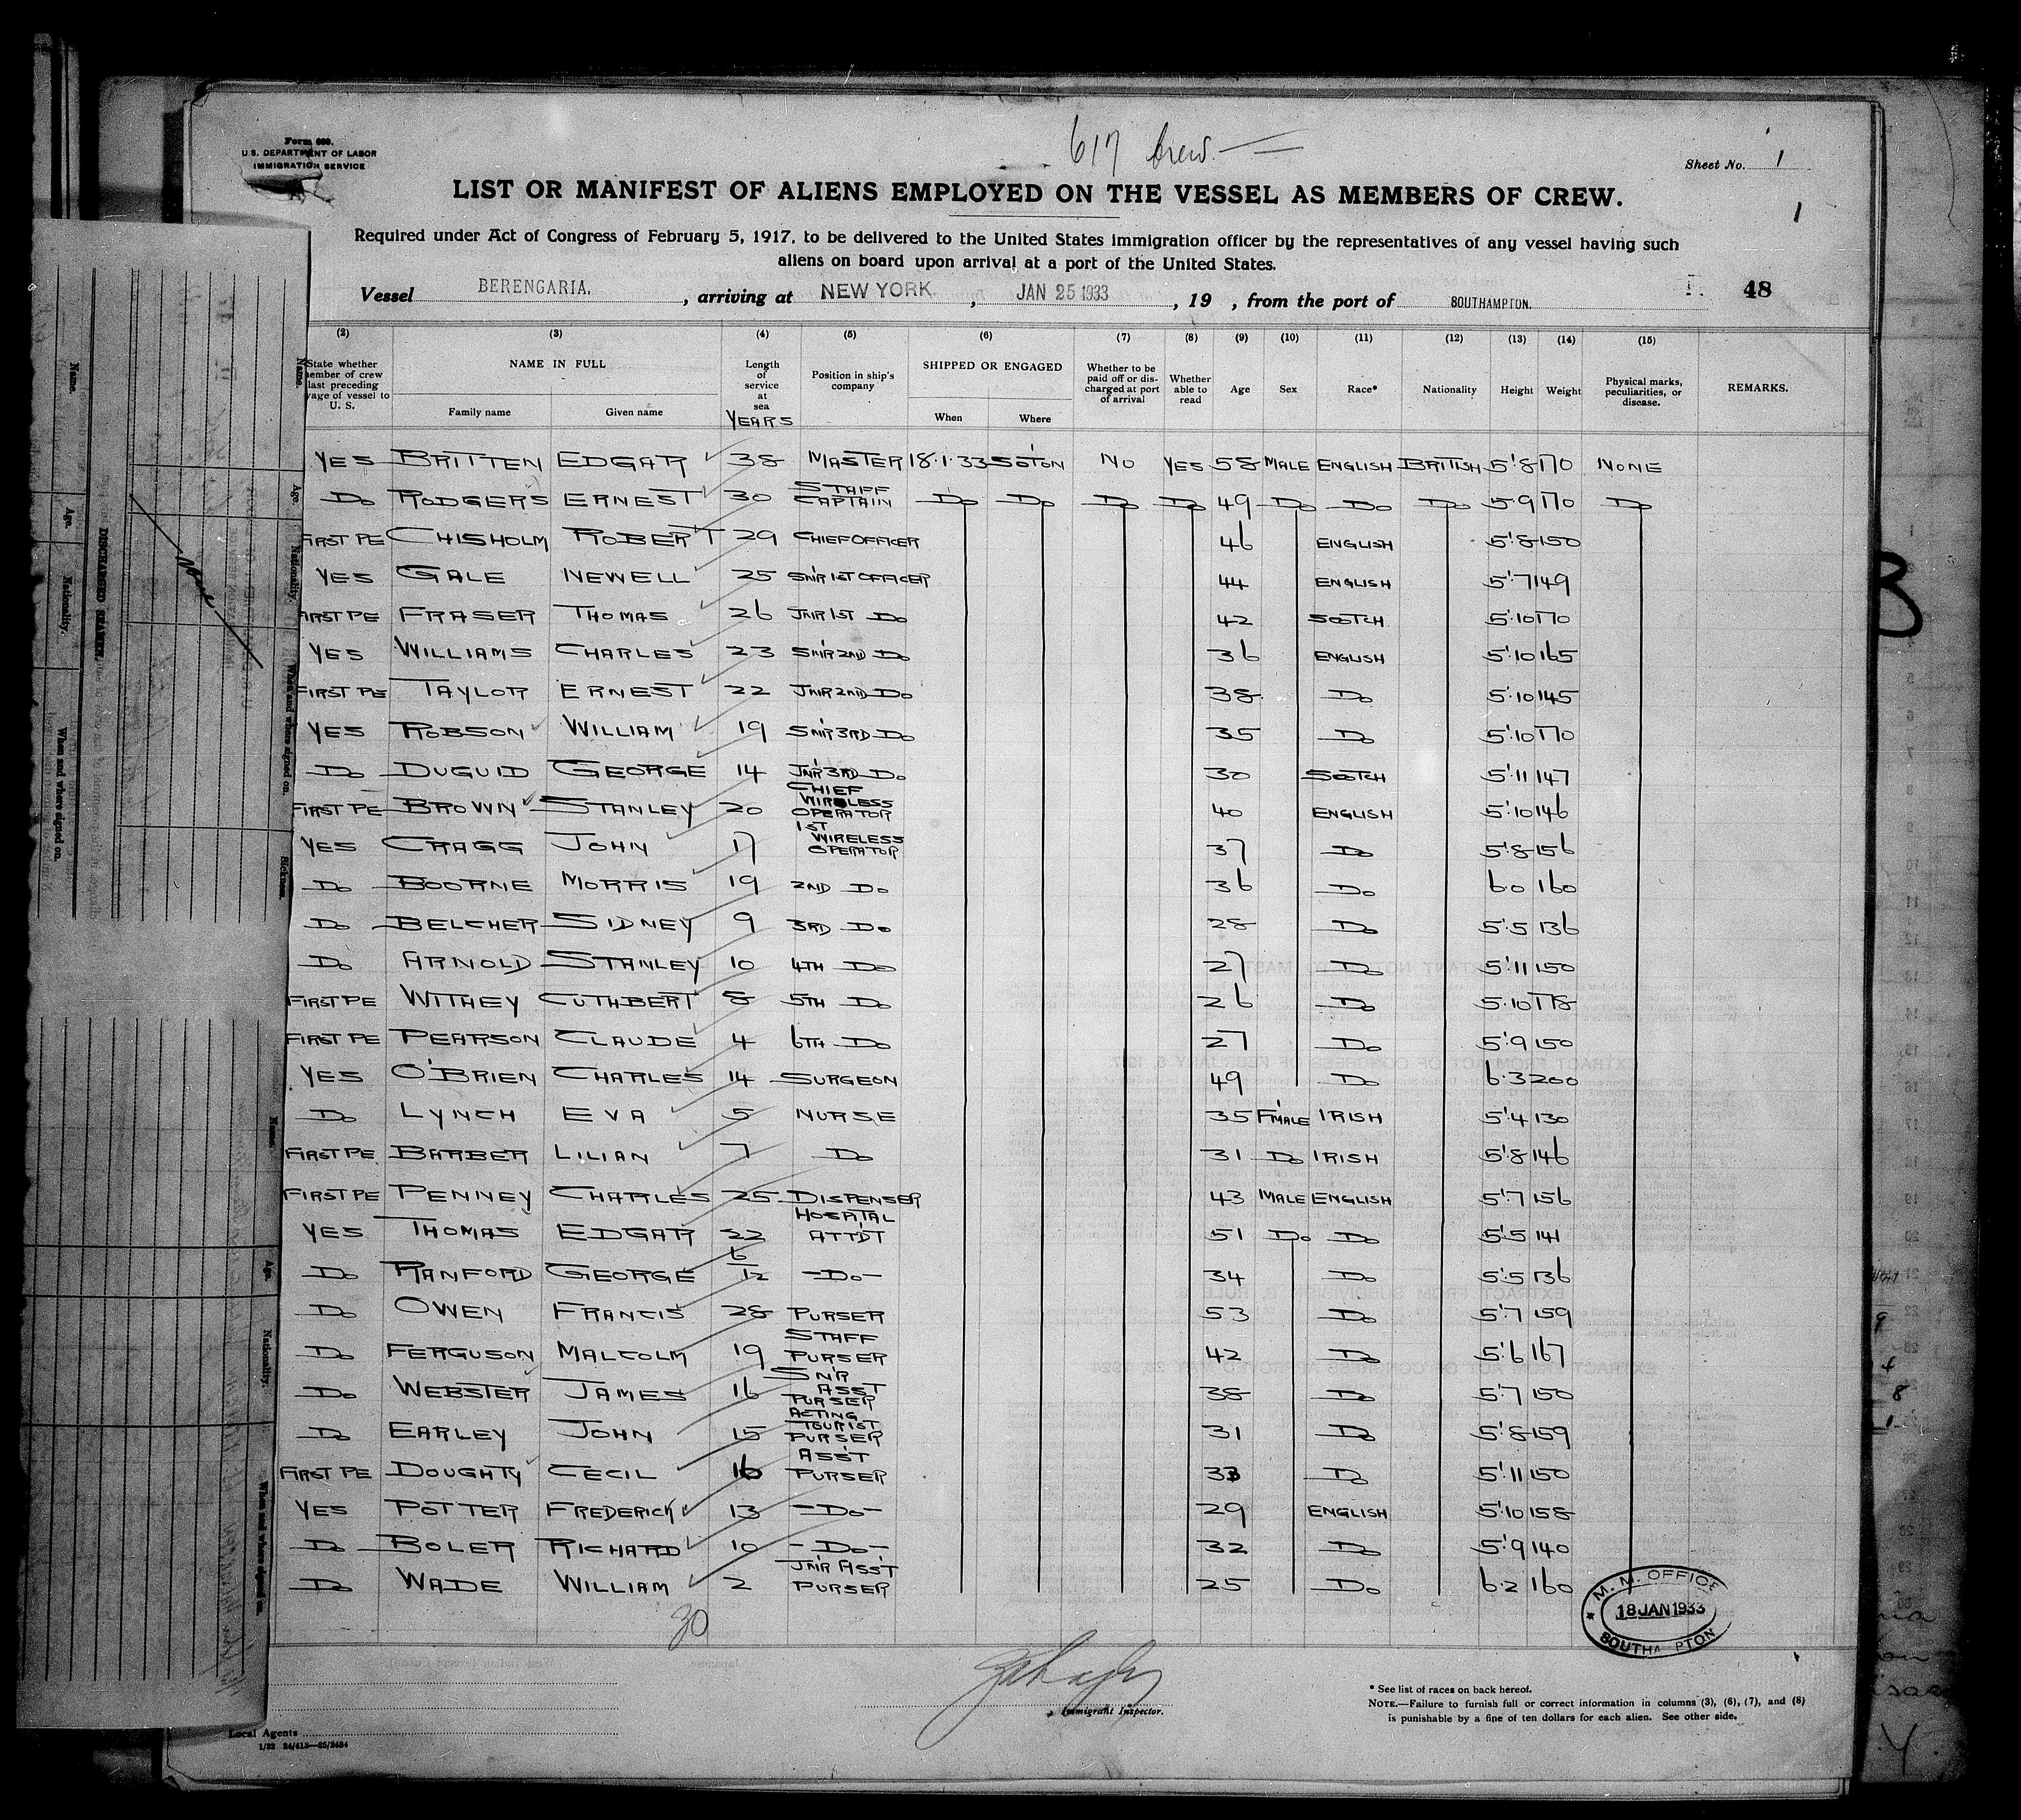 617 Crew.
Form 680.
U.S. DEPARTMENT OF LABOR
IMMIGRATION SERVICE
Sheet No. 1
LIST OR MANIFEST OF ALIENS EMPLOYED ON THE VESSEL AS MEMBERS OF CREW.
1
Required under Act of Congress of February 5, 1917, to be delivered to the United States immigration officer by the representatives of any vessel having such
aliens on board upon arrival at a port of the United States.
Vessel BERENGARIA. , arriving at NEW YORK , JAN 25 1933 , 19 , from the port of SOUTHAMPTON. 48
(2) (3) (4) (5) (6) (7) (8) (9) (10) (11) (12) (13) (14) (15)
State whether member of crew last preceding voyage of vessel to U. S. NAME IN FULL Family name Given name Length of service at sea YEARS Position in ship's company SHIPPED OR ENGAGED When Where Whether to be paid off or discharged at port of arrival Whether able to read Age Sex Race* Nationality Height Weight Physical marks, peculiarities, or disease. REMARKS.
YES BRITTEN EDGAR 38 MASTER 18.1.33 SO'TON NO YES 58 MALE ENGLISH BRITISH 5'8 170 NONE
DO RODGERS ERNEST 30 STAFF CAPTAIN DO DO DO DO 49 DO DO DO 5.9 170 DO
FIRST PE CHISHOLM ROBERT 29 CHIEF OFFICER 46 ENGLISH 5'8 150
YES GALE NEWELL 25 SNR 1ST OFFICER 44 ENGLISH 5'7 149
FIRST PE FRASER THOMAS 26 JNR 1ST DO 42 SCOTCH 5'10 170
YES WILLIAMS CHARLES 23 SNR 2ND DO 36 ENGLISH 5'10 165
FIRST PE TAYLOR ERNEST 22 JNR 2ND DO 38 DO 5'10 145
YES ROBSON WILLIAM 19 SNR 3RD DO 35 DO 5'10 170
DO DUGUID GEORGE 14 JNR 3RD DO 30 SCOTCH 5'11 147
FIRST PE BROWN STANLEY 20 CHIEF WIRELESS OPERATOR 40 ENGLISH 5'10 146
YES CRAGG JOHN 17 1ST WIRELESS OPERATOR 37 DO 5'8 156
DO BOORNE MORRIS 19 2ND DO 36 DO 6.0 160
DO BELCHER SIDNEY 9 3RD DO 28 DO 5'5 136
DO ARNOLD STANLEY 10 4TH DO 27 DO 5'11 150
FIRST PE WITHEY CUTHBERT 8 5TH DO 26 DO 5.10 178
FIRST PE PEARSON CLAUDE 4 6TH DO 27 DO 5'9 150
YES O'BRIEN CHARLES 14 SURGEON 49 DO 6.3 200
DO LYNCH EVA 5 NURSE 35 F'MALE IRISH 5'4 130
FIRST PE BARBER LILIAN 7 DO 31 DO IRISH 5'8 146
FIRST PE PENNEY CHARLES 25 DISPENSER 43 MALE ENGLISH 5'7 156
YES THOMAS EDGAR 22 HOSPITAL ATT'DT 51 DO DO 5'5 141
DO RANFORD GEORGE 6/12 -DO- 34 DO 5'5 136
DO OWEN FRANCIS 28 PURSER 53 DO 5'7 159
DO FERGUSON MALCOLM 19 STAFF PURSER 42 DO 5'6 167
DO WEBSTER JAMES 16 SN'R ASST PURSER 38 DO 5'7 150
DO EARLEY JOHN 15 ACTING TOURIST PURSER 31 DO 5'8 159
FIRST PE DOUGHTY CECIL 16 ASS'T PURSER 33 DO 5'11 150
YES POTTER FREDERICK 13 -DO- 29 ENGLISH 5'10 158
DO BOLER RICHARD 10 -DO- 32 DO 5'9 140
DO WADE WILLIAM 2 JN'R ASS'T PURSER 25 DO 6.2 160
30
M. M. OFFICE
18 JAN 1933
SOUTHAMPTON
Immigrant Inspector.
* See list of races on back hereof.
NOTE.—Failure to furnish full or correct information in columns (3), (6), (7), and (8)
is punishable by a fine of ten dollars for each alien. See other side.
Local Agents
1/32 24/413—25/2484
Name.
Age.
Nationality.
When and where signed on.
DISCHARGED SEAMEN
Name.
Age.
Nationality.
When and where signed on.
Name.
Age.
Nationality.
When and where signed on.